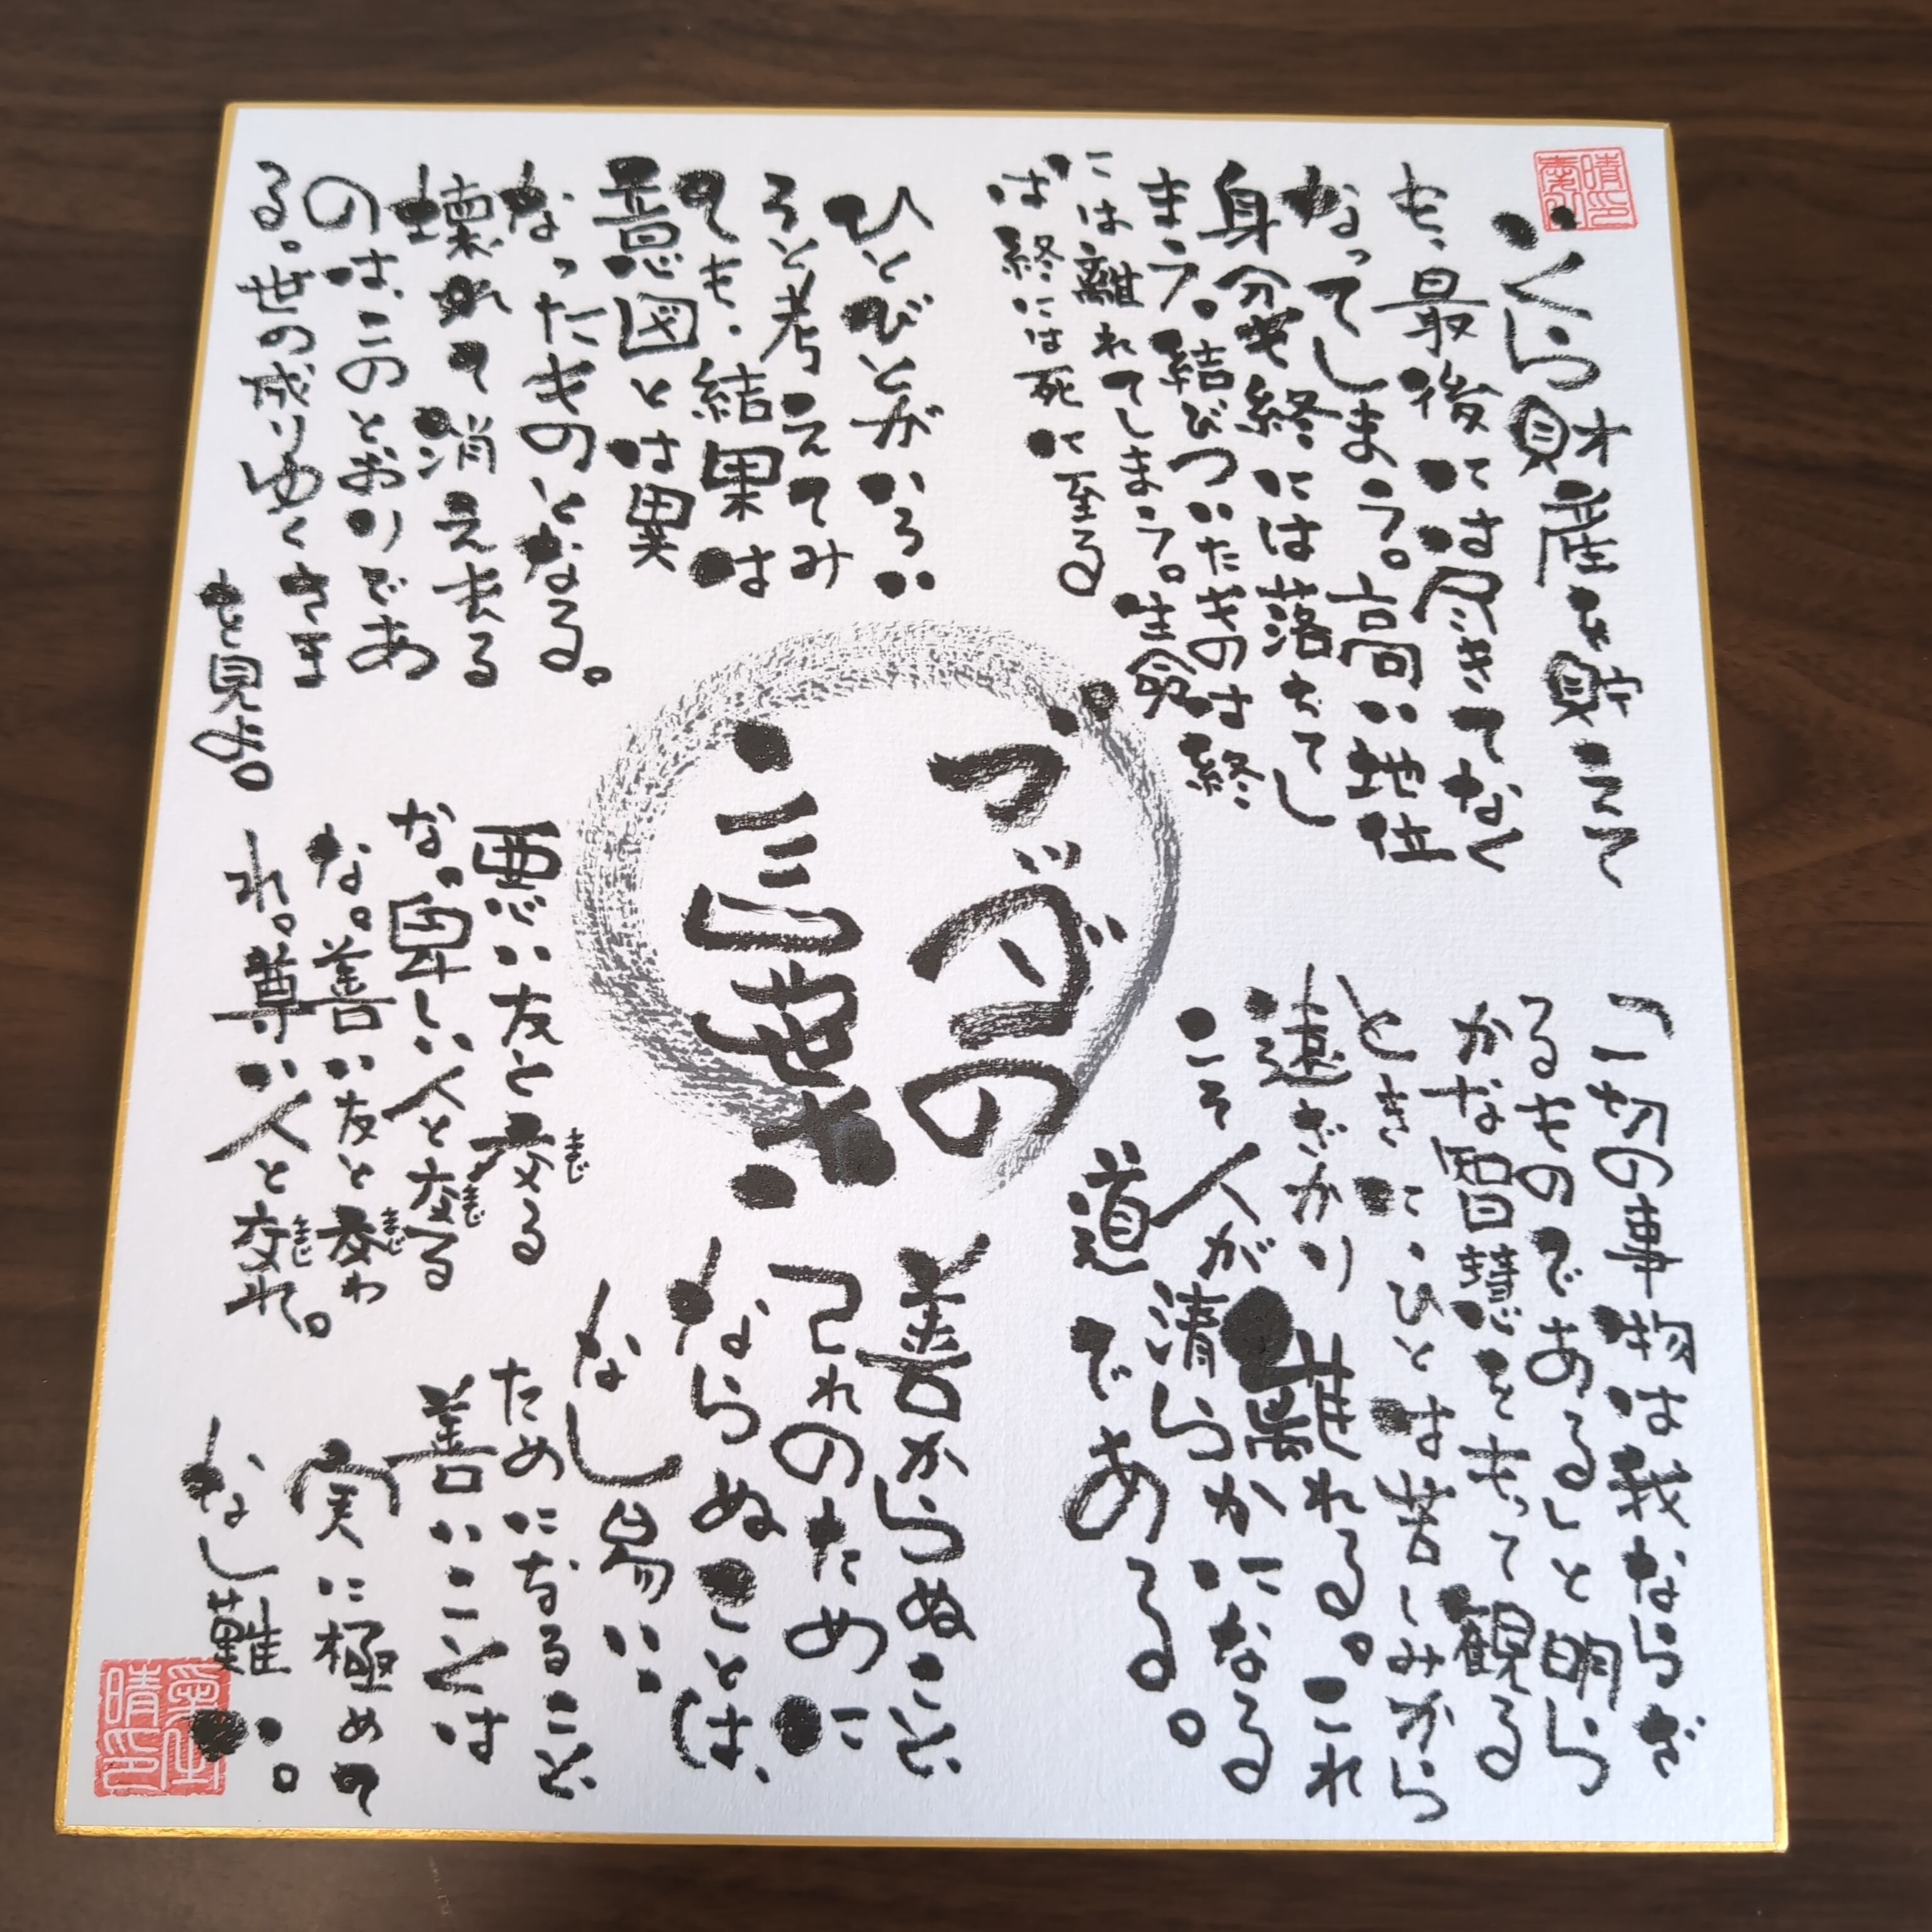 いくら財産を貯えて
も、最後には尽きてなく
なってしまう。高い地位
身分も終には落ちてし
まう。結びついたものは終
には離れてしまう。生命
は終には死に至る。
ひとびとがいろい
ろと考えてみ
ても、結果は
意図とは異
なったものとなる。
壊れて消え去る
のは、このとおりであ
る。世の成りゆくさま
を見よ。
ブッダの
言葉
「一切の事物は我ならざ
るものである」と明ら
かな智慧を もって観る
ときに、ひとは苦しみから
遠ざかり離れる。これ
こそ人が清らかになる
道である。
悪い友と交る
な。卑しい人と交る
な。善い友と交わ
れ。尊い人と交れ。
まじ
まじ
まじ
まじ
善からぬこと
己れのために
ならぬことは、
なし易い
ためになること
善いことは
実に極めて
なし難い。